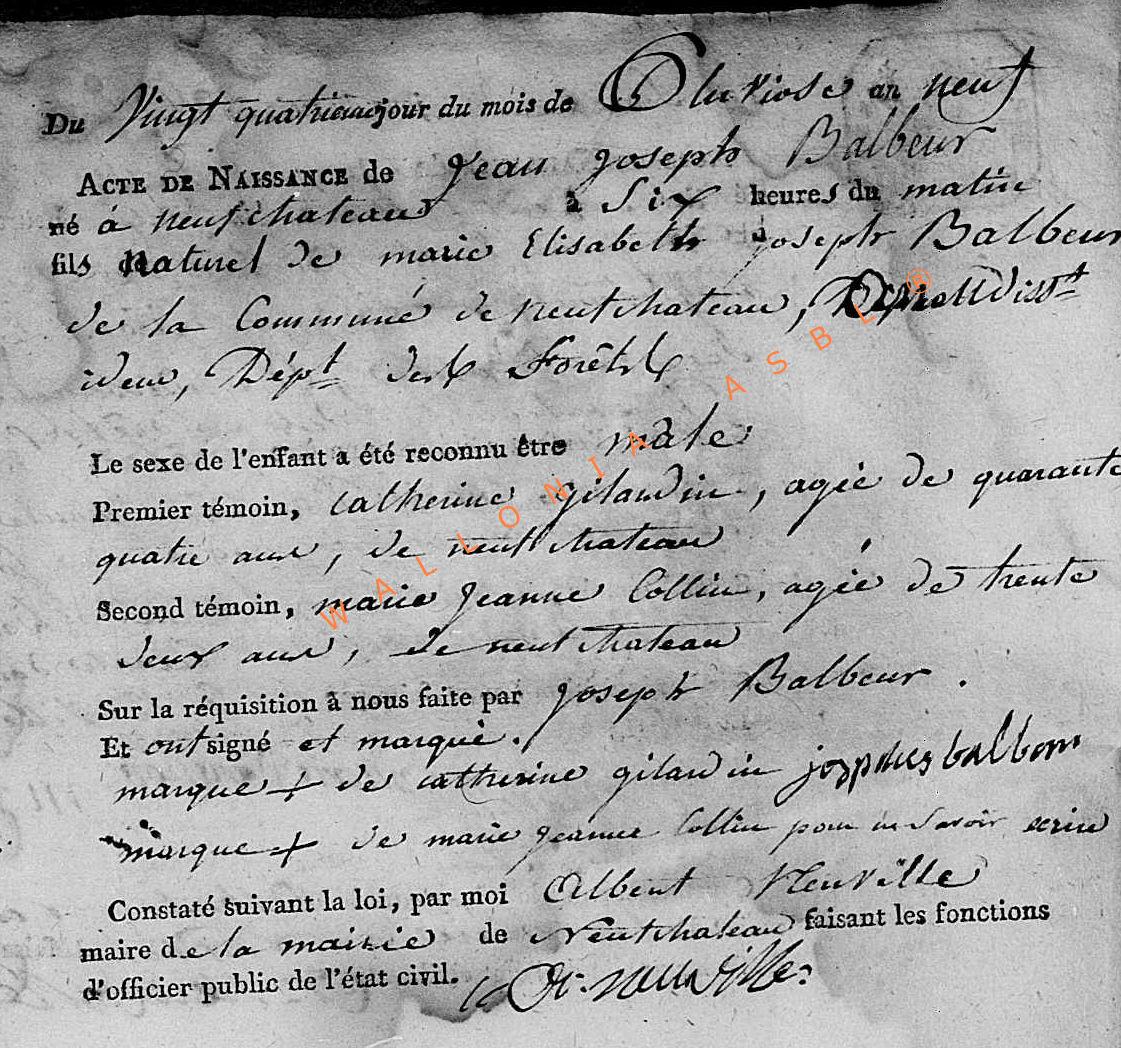 Du Vingt quatrieme jour du mois de Pluviose an neuf
ACTE DE NAISSANCE de Jean Joseph Balbeur
né à neufchateau à Six heures du matin
fils naturel de marie Elisabeth Joseph Balbeur
de la Commune de neufchateau,
idem, Dépt des Forêts
Le sexe de l'enfant a été reconnu être male
Premier témoin, Catherine gilardin, agée de quarante
quatre ans, de neufchateau
Second témoin, marie Jeanne Collin, agée de trente
deux ans, de neufchateau
Sur la réquisition à nous faite par Joseph Balbeur.
Et ont signé et marqué.
marque + de catherine gilardin balbeur
marque + de marie jeanne Collin pour ne savoir ecrire
Constaté suivant la loi, par moi Albert Neuville
maire de la mairie de Neufchateau faisant les fonctions
d'officier public de l'état civil. A. neuville
WALLONIA ASBL ®